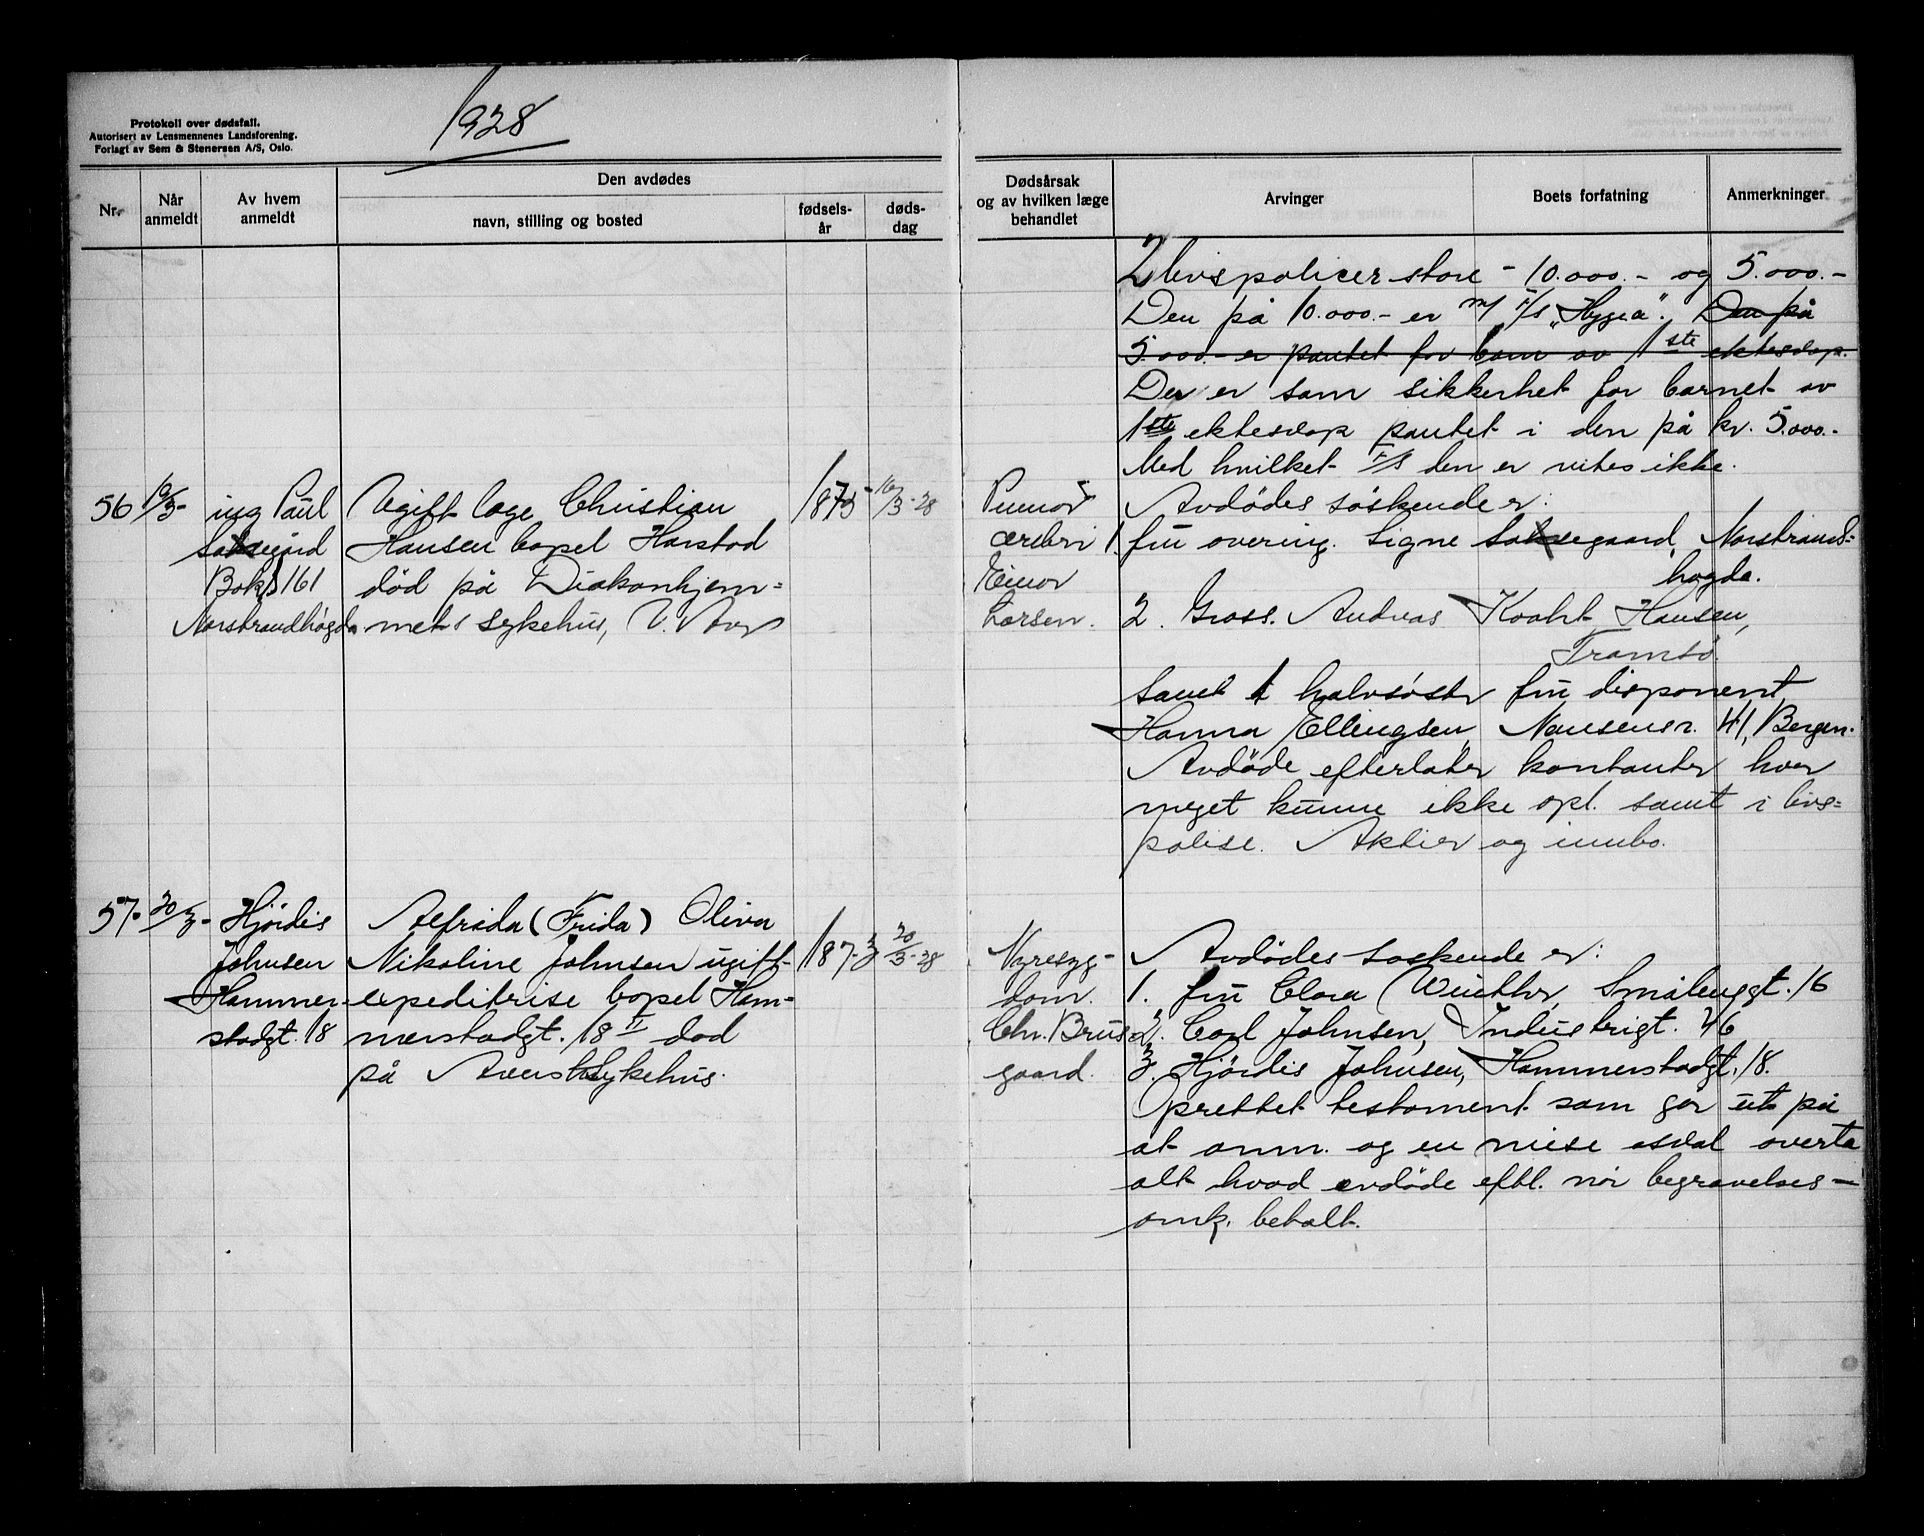 1928
Protokoll over dødsfall.
Autorisert av Lensmennenes Landsforening.
Forlagt av Sem & Stenersen A/S, Oslo.
Nr.
Når anmeldt
Av hvem anmeldt
Den avdødes
navn, stilling og bosted
fødsels-år
døds-dag
Dødsårsak
og av hvilken læge
behandlet
Arvinger
Boets forfatning
Anmerkninger
2 livspolicer store - 10.000.- og 5.000.-
Den på 10.000.- er "Hygea". Den på
5.000.- er pantet for barn av 1ste ektesdap.
Der er som sikkerhet for barnet av
1ste ektesdap pantet i den på kr. 5.000.-
Med hvilket F/S den er vites ikke.
56 19/3- ing Paul
gård
Boks 161
Norstrandhøgda
Ugift læge Christian
Hansen bopel Harstad
død på Diakonhjem=
mets sykehus, V. Aker
1875 16/3-28
Tumor
cerebri
Einar
Larsen.
Avdødes søskende er:
1. fru overing. Signe Norstrands=
høgda.
2. Gross. Andreas Hansen,
Tromsø.
Samt 1 halvsøster fru disponent
Hanna Ellingsen, Nansensv. 41, Bergen.
Avdøde efterlater kontanter hvor
meget kunne ikke opl. samt i livs=
polise. Aktier og innbo.
57- 20/3- Hjørdis
Johnsen
Hammer-
stadgt. 18
Alfrida (Frida) Oliva
Nikoline Johnsen ugift
expeditrise bopel Ham-
merstadgt. 18 II død
på Sykehus.
187-3 20/3-28
Nyresyg-
dom.
Chr. Brus
gaard.
Avdødes søskende er:
1. fru Clara Winther, Smålenggt. 16
2. Carl Johnsen, Industrigt. 46
3. Hjørdis Johnsen, Hammerstadgt. 18.
Oprettet testament som går ut på
at anm. og en niese skal overta
alt hvad avdøde eftl. når begravelses-
omk. betalt.